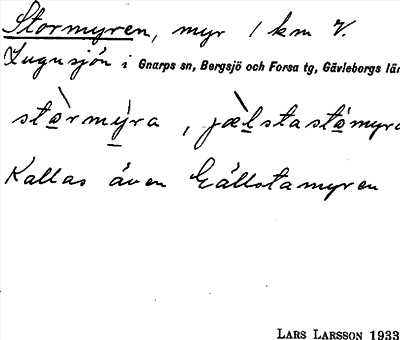 Stormyren, myr 1 km V.
Lugusjön i Gnarps sn, Bergsjö och Forsa tg, Gävleborgs län
stòrmýra, jæ̀lstastómyra
Kallas även Gällstamyren
LARS LARSSON 1933